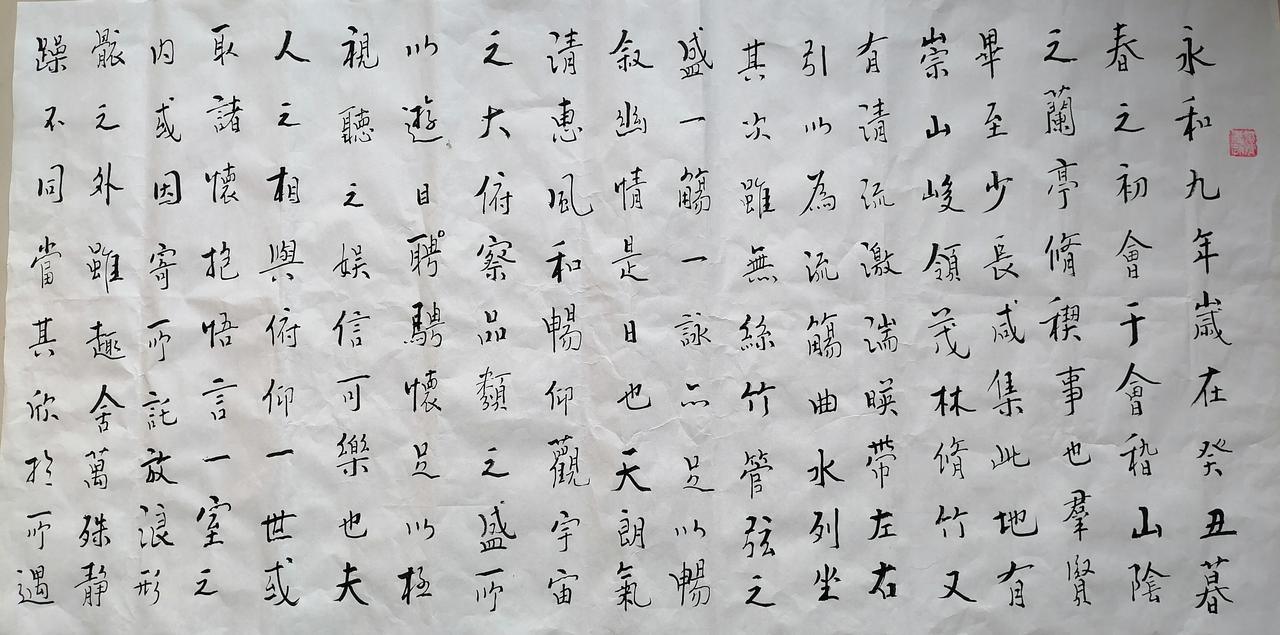 永和九年歲在癸丑暮
春之初會于會稽山陰
之蘭亭脩稧事也羣賢
畢至少長咸集此地有
崇山峻領茂林脩竹又
有清流激湍暎帶左右
引以為流觴曲水列坐
其次雖無絲竹管弦之
盛一觴一詠亦足以暢
敘幽情是日也天朗氣
清惠風和暢仰觀宇宙
之大俯察品類之盛所
以遊目聘騁懷足以極
視聽之娱信可樂也夫
人之相與俯仰一世或
取諸懷抱悟言一室之
內或因寄所託放浪形
骸之外雖趣舍萬殊靜
躁不同當其欣於所遇